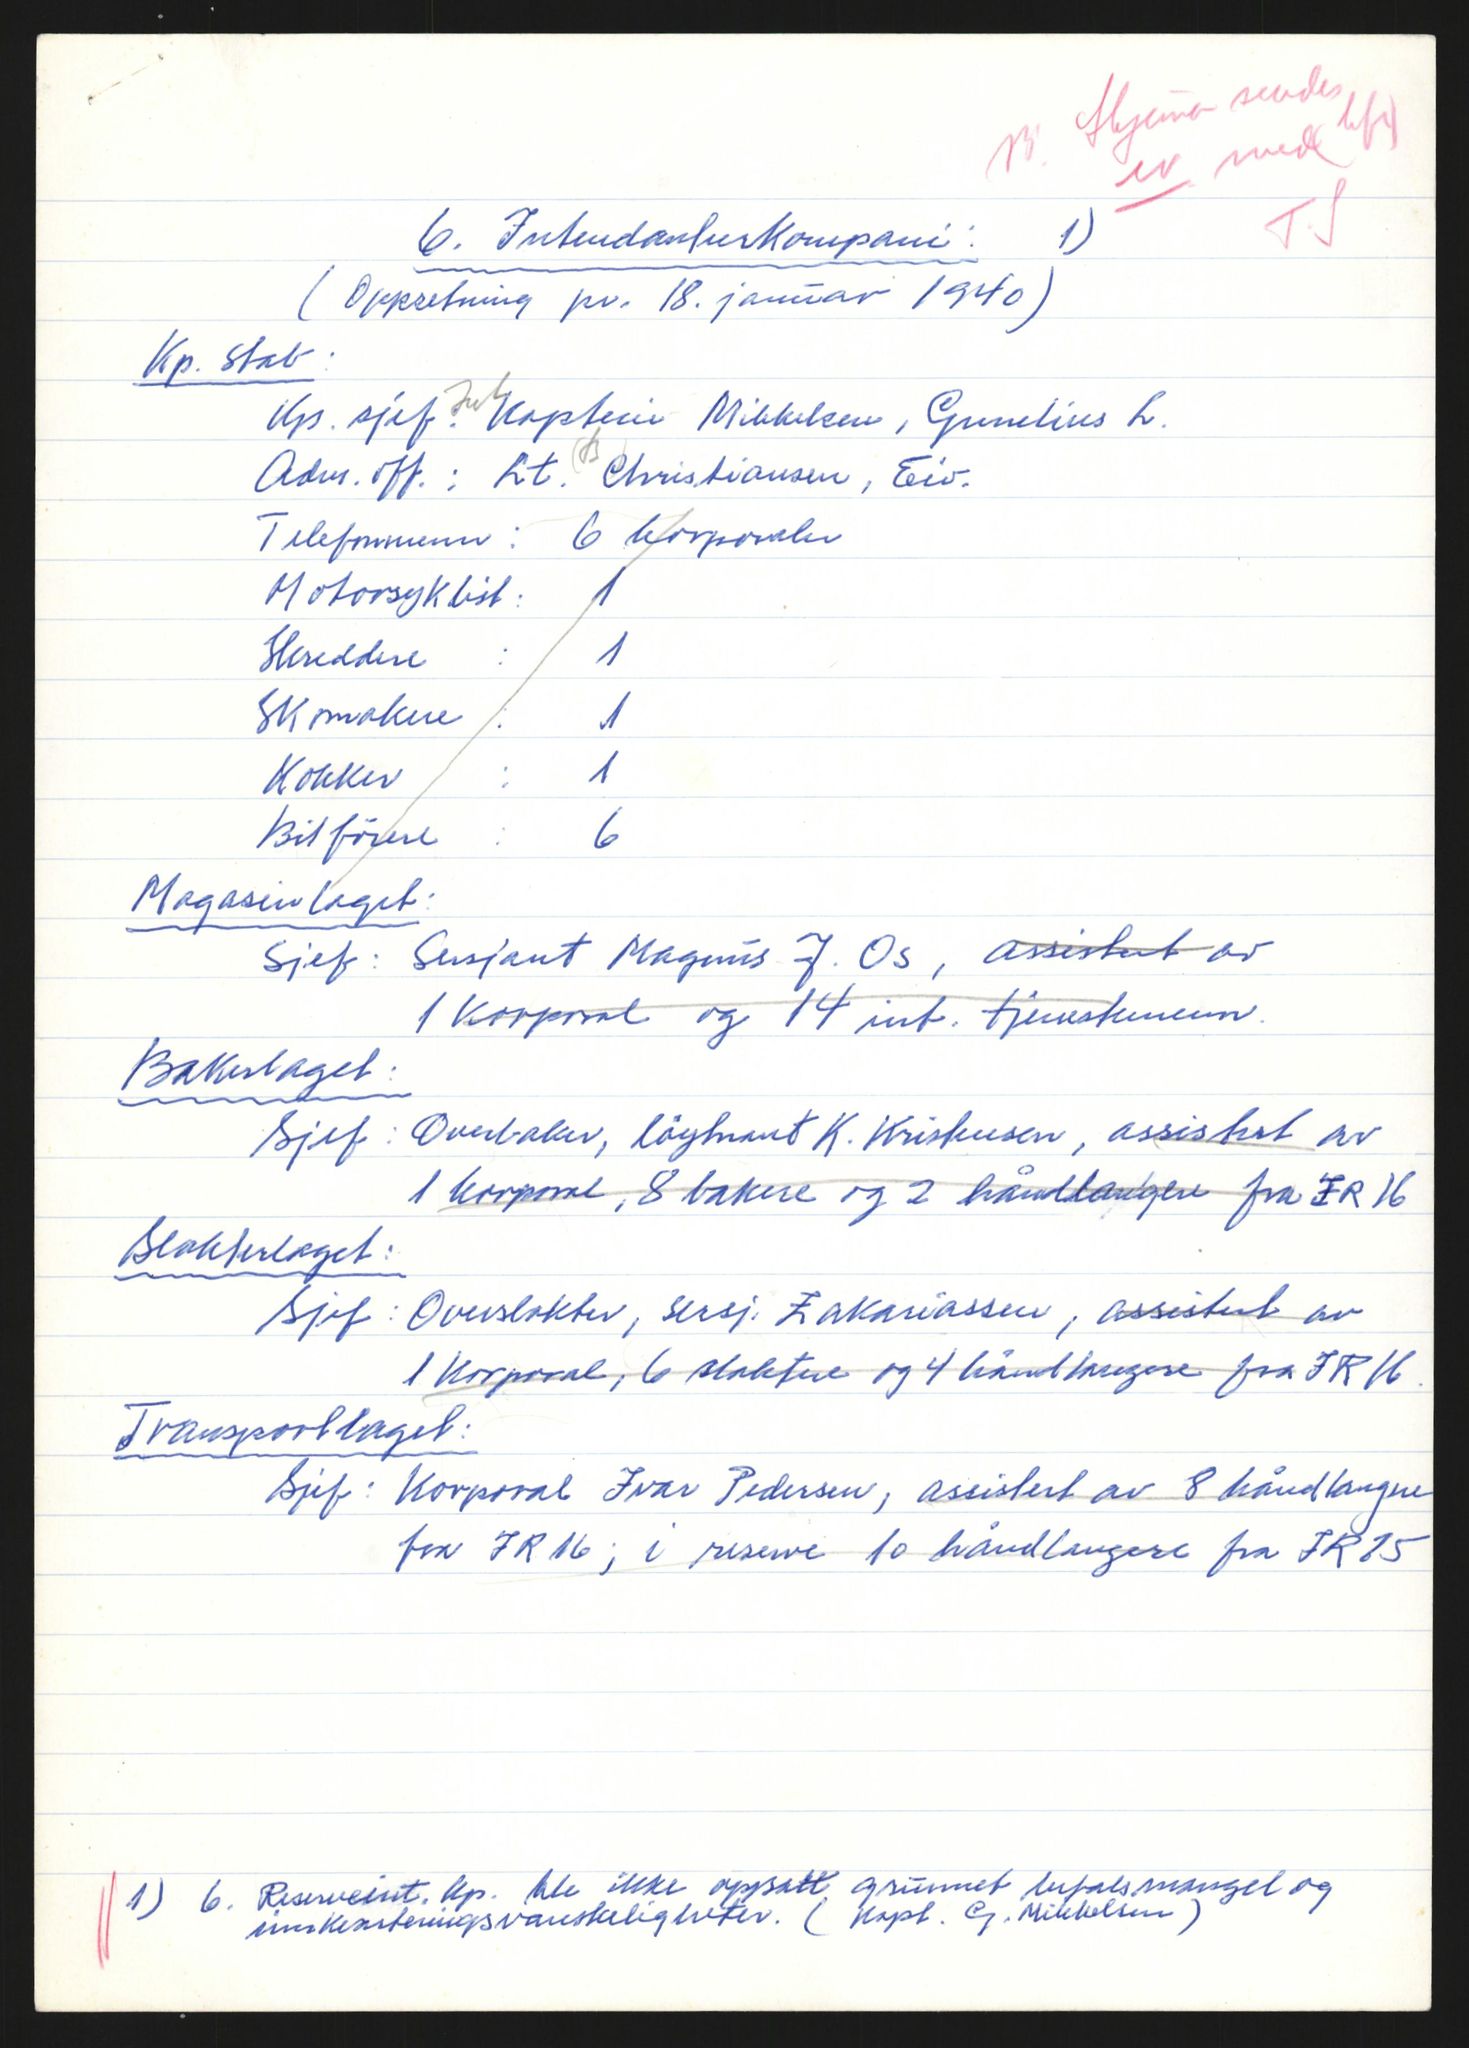 Skjema sendes
ev. med
T.S
6. Intendanturkompani: 1)
(Oppsetning pr. 18. januar 1940)
Kp. stab:
Kp. sjef: Int Kaptein Mikkelsen, Gunelius L.
Adm. off.: Lt. (B) Christiansen, Eiv.
Telefonmenn: 6 korporaler
Motorsyklist: 1
Skreddere : 1
Skomakere : 1
Kokker : 1
Bilförere : 6
Magasinlaget:
Sjef: Sersjant Magnus J. Os, assistert av
1 Korporal og 14 int. tjenestemenn.
Bakerlaget:
Sjef: Overbaker, löytnant K. Kristensen, assistert av
1 korporal, 8 bakere og 2 håndlangere fra IR 16
Slakterlaget:
Sjef: Overslakter, sersj. Zakariassen, assistert av
1 Korporal, 6 slaktere og 4 håndlangere fra IR 16.
Transportlaget:
Sjef: Korporal Ivar Pedersen, assistert av 8 håndlangere
fra IR 16; i reserve 10 håndlangere fra IR 15
1) 6. Reserveint. kp. ble ikke oppsatt grunnet befalsmangel og
innkvarteringsvanskeligheter. (Kapt. G. Mikkelsen)